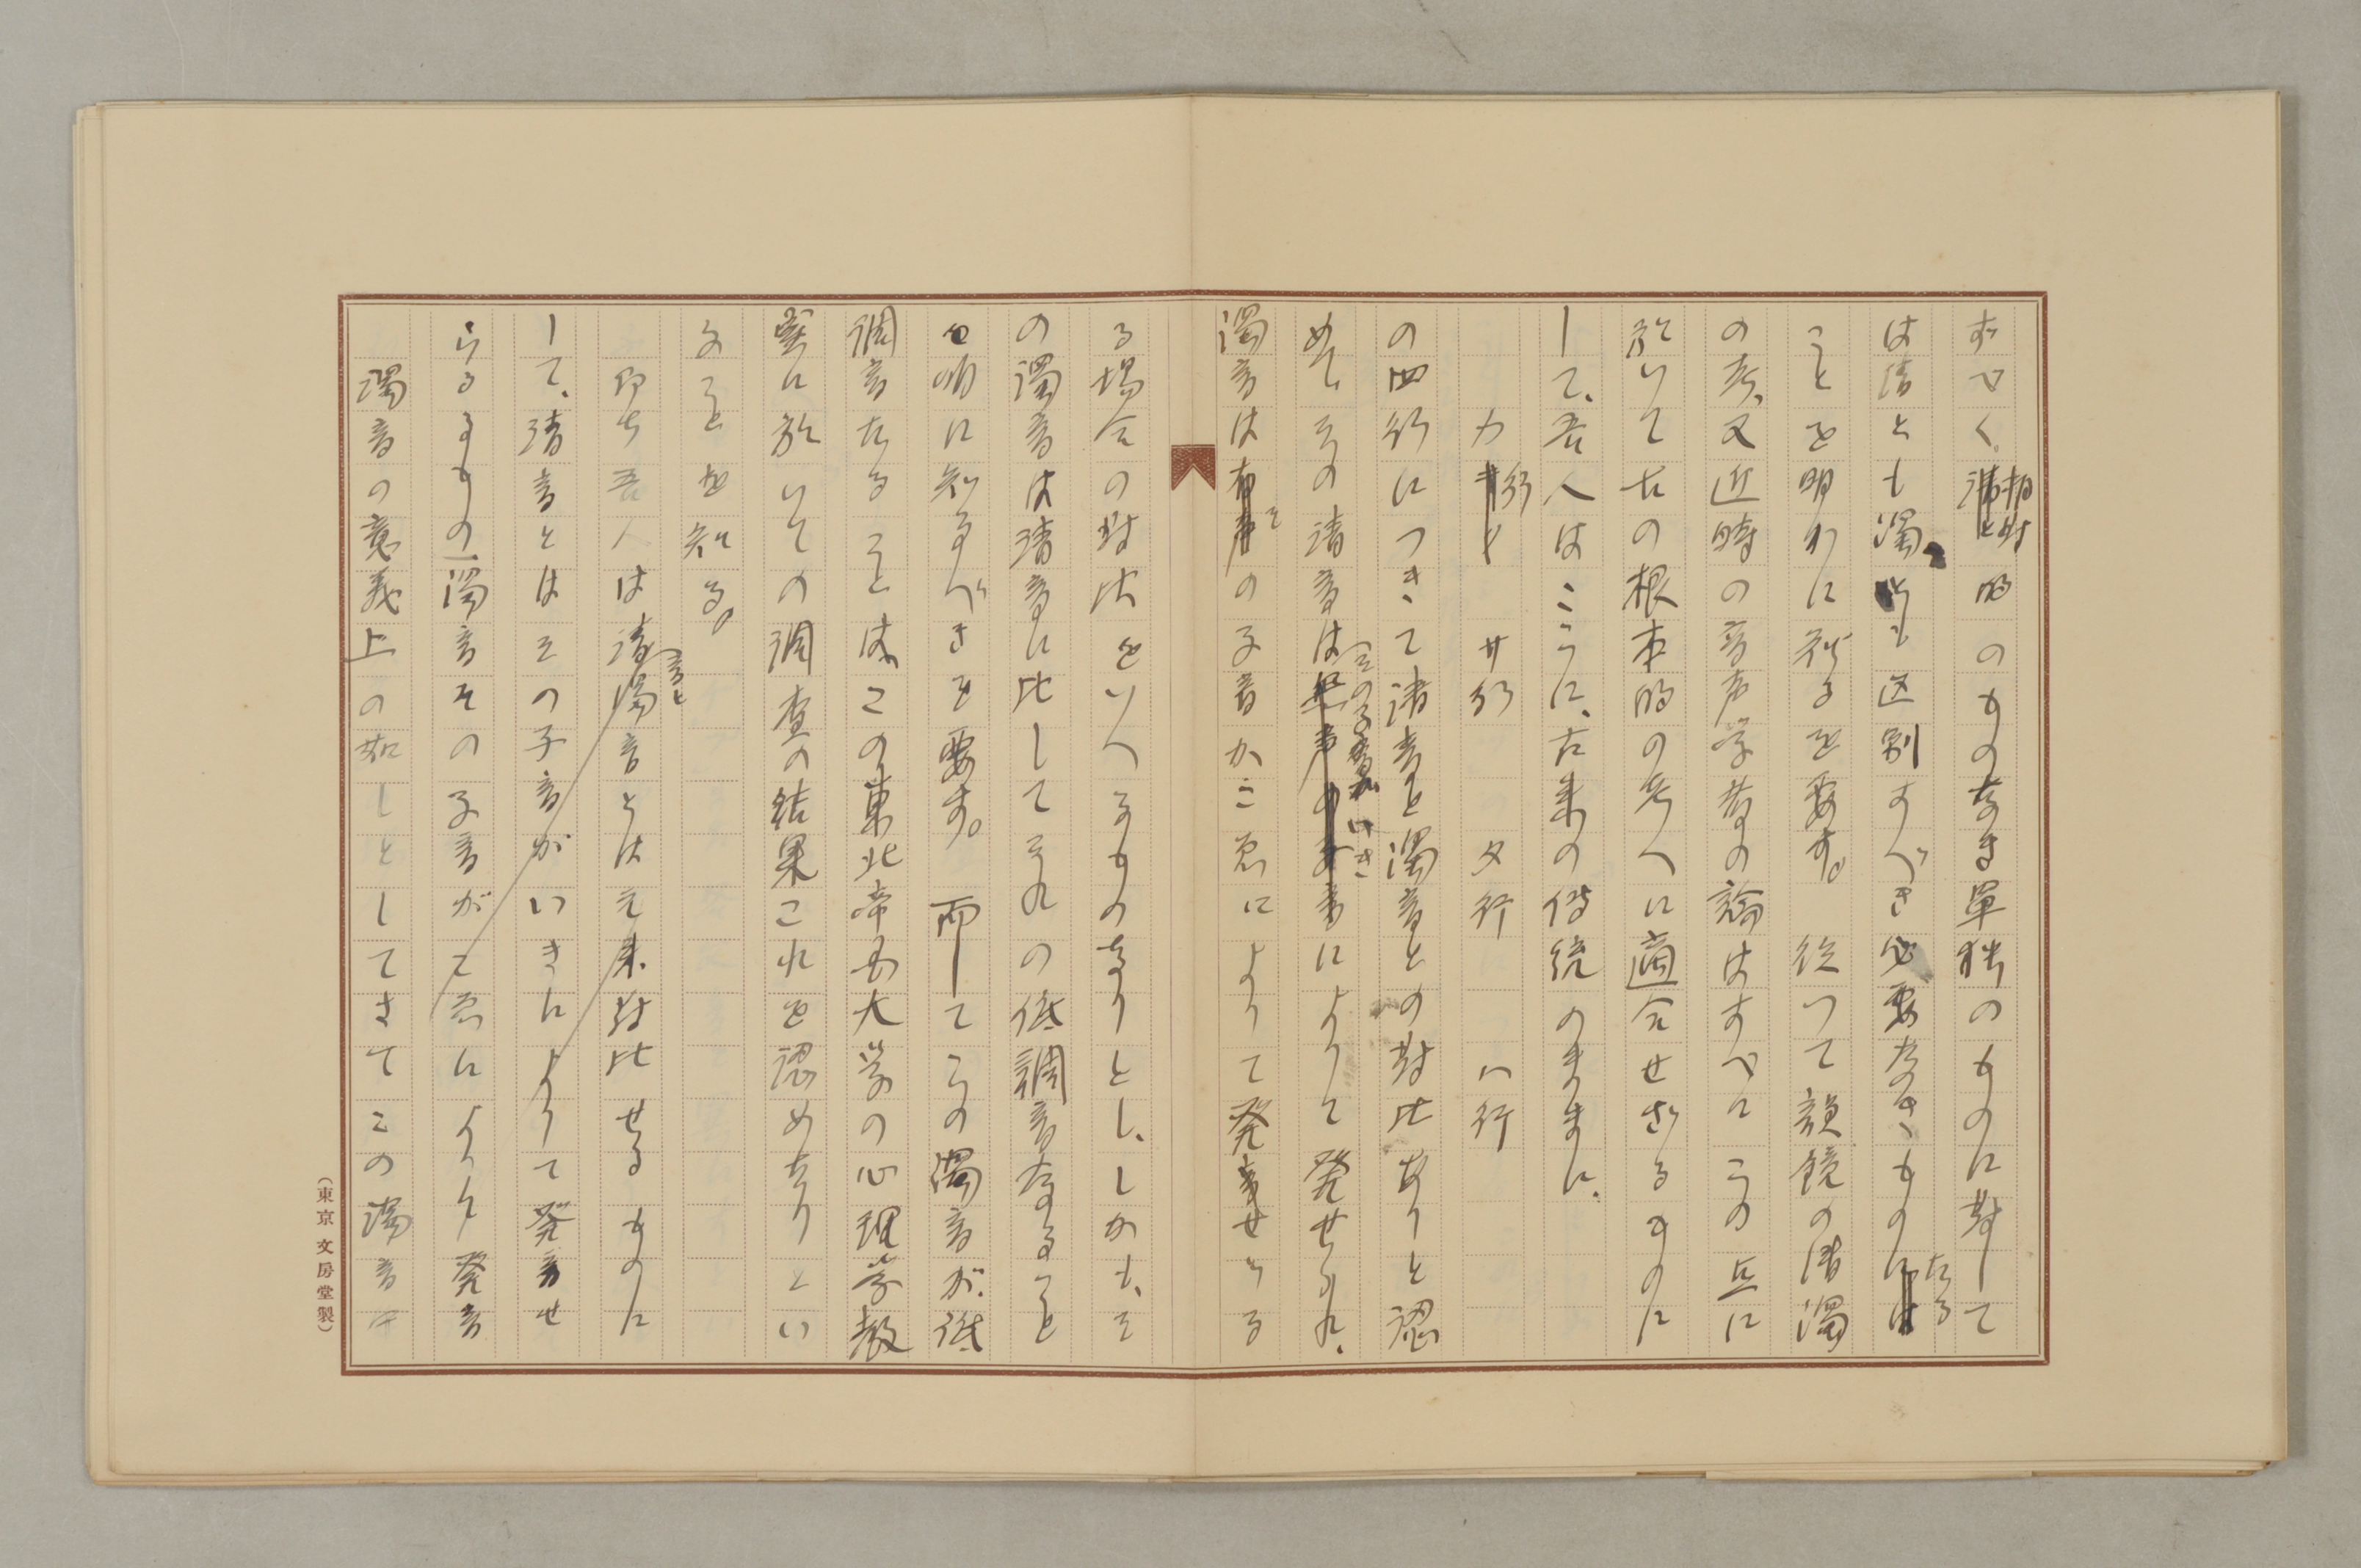 すべく、相対的のものなき単独のものに対して
は清とも濁とも区別すべき必要なきものたる
ことを明かに知るを要す。従つて韻鏡の清濁
の考、又近時の音声学者の論はすべてこの点に
於いて古の根本的の考へに適合せざるものに
して、吾人はここに、古来の伝統のままに、
カ行 サ行 タ行 ハ行
の四行につきて清音と濁音との対比ありと認
めて、その清音はその子音がいきによりて発せられ、
濁音はその子音がこゑによりて発音せらる
る場合の対比をいへるものなりとし、しかも、そ
の濁音は清音に比してそれの低調音なること
を明に知るべきを要す。而してこの濁音が、低
調音なることは、この東北帝国大学の心理学教
室に於いての調査の結果これを認めたりとい
ふことを知る。
即ち吾人は清音と濁音とは元来対比せるものに
して、清音とはその子音がいきによりて発音せ
らるるもの、濁音その子音がこゑによりて発音
濁音の意義上の如しとしてさてこの濁音は
（東京文房堂製）